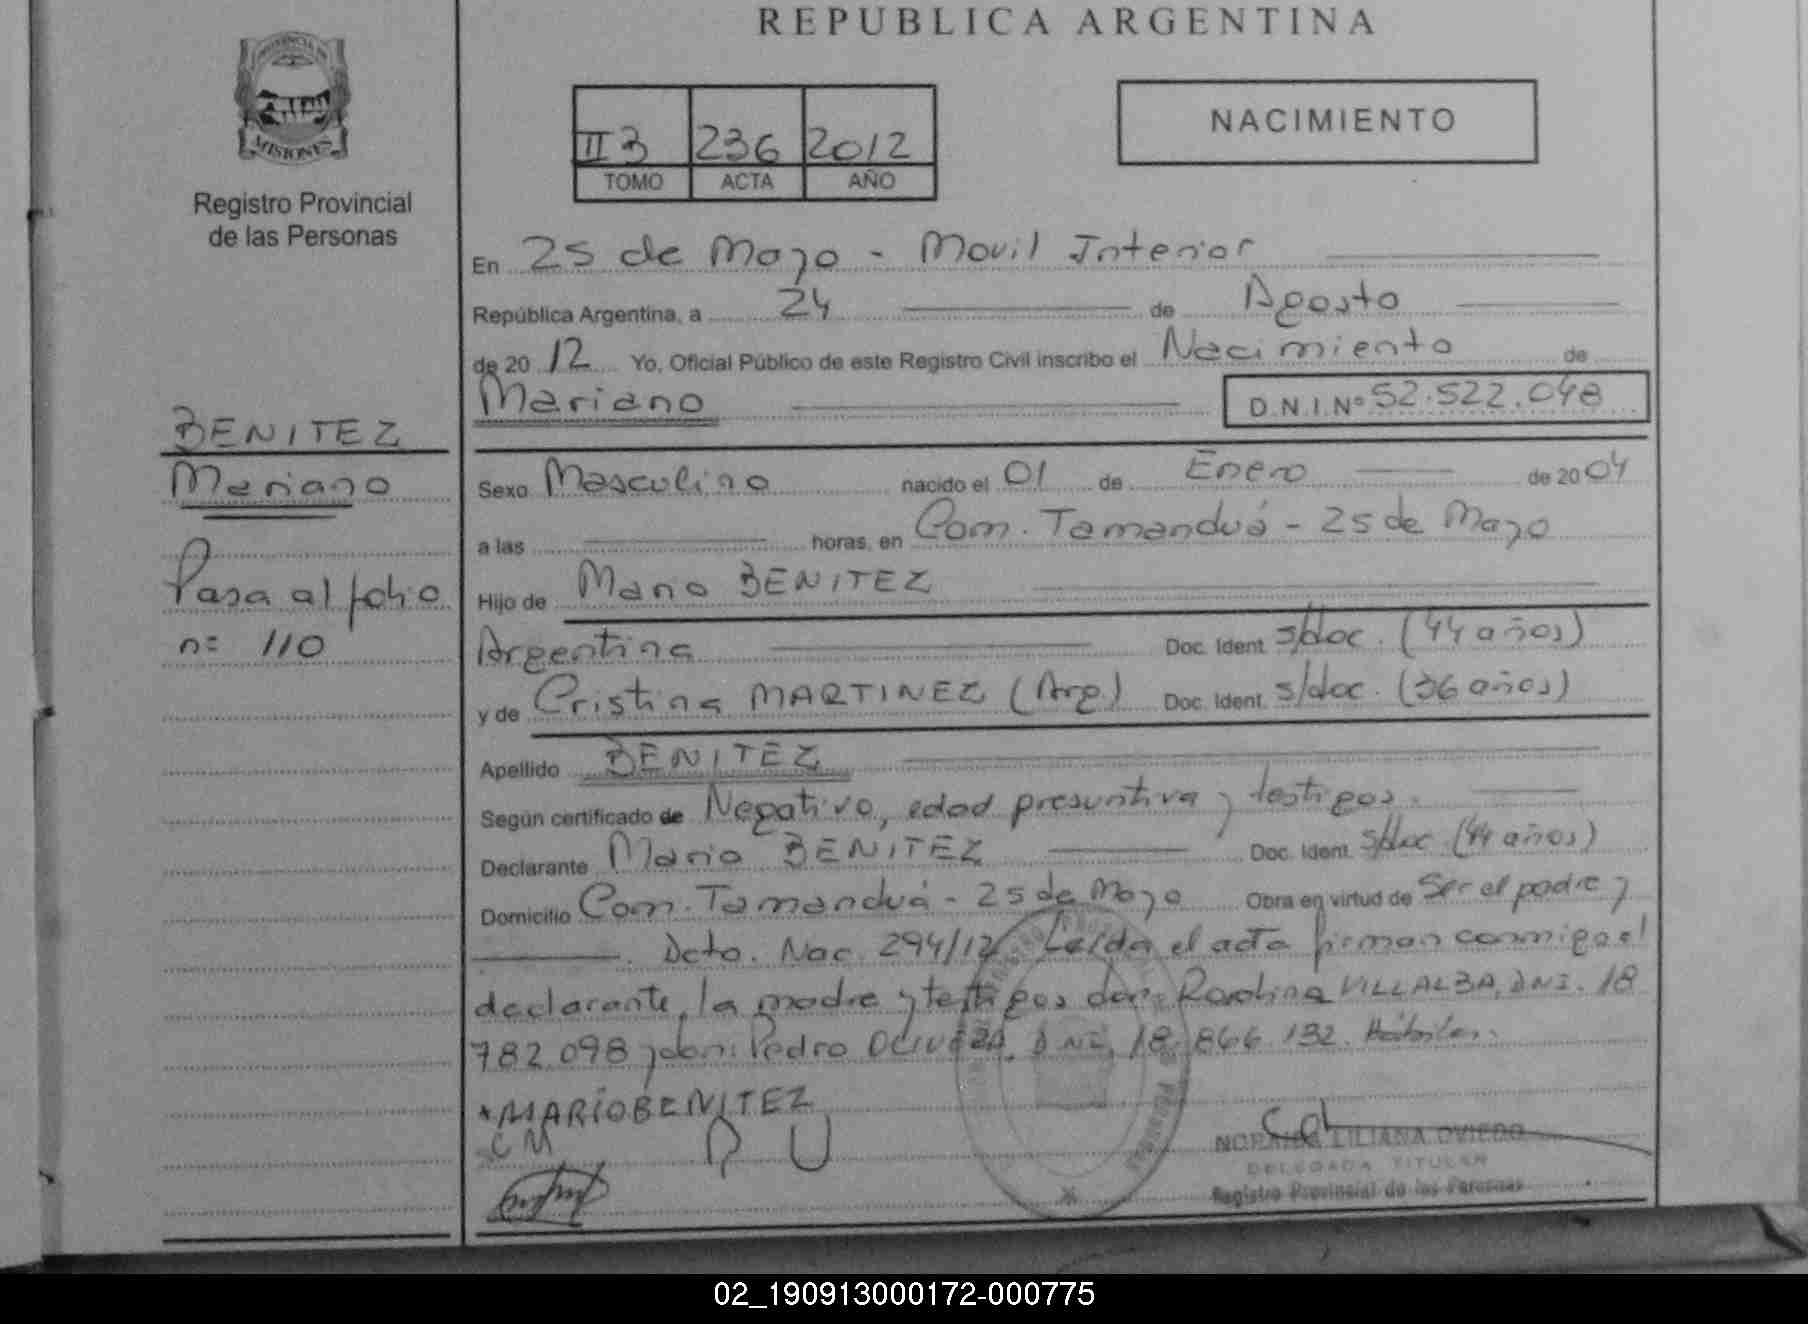 REPUBLICA ARGENTINA
PROVINCIA DE
MISIONES
Registro Provincial
de las Personas
II 3 236 2012
TOMO ACTA AÑO
NACIMIENTO
En 25 de Mayo - Movil Interior
República Argentina, a 24 de Agosto
de 20 12 Yo, Oficial Público de este Registro Civil inscribo el Nacimiento de
Mariano D.N.I.Nº 52.522.048
BENITEZ
Mariano
Pasa al folio
nº 110
Sexo Masculino nacido el 01 de Enero de 20 04
a las horas, en Com. Tamanduá - 25 de Mayo
Hijo de Mario BENITEZ
Argentina Doc. Ident. s/doc. (44 años)
y de Cristina MARTINEZ (Arg.) Doc. Ident. s/doc. (36 años)
Apellido BENITEZ
Según certificado de Negativo, edad presuntiva y testigos.
Declarante Mario BENITEZ Doc. Ident. s/doc (44 años)
Domicilio Com. Tamanduá - 25 de Mayo Obra en virtud de Ser el padre y
Dcto. Nac. 294/12. Leída el acta firman conmigo el
declarante, la madre y testigos don: VILLALBA, DNI. 18
782.098 y don: Pedro OLIVERA, DNI, 18.866.132. Hábiles.
*MARIO BENITEZ
CM P U
LILIANA OVIEDO
DELEGADA TITULAR
Registro Provincial de las Personas
02_190913000172-000775